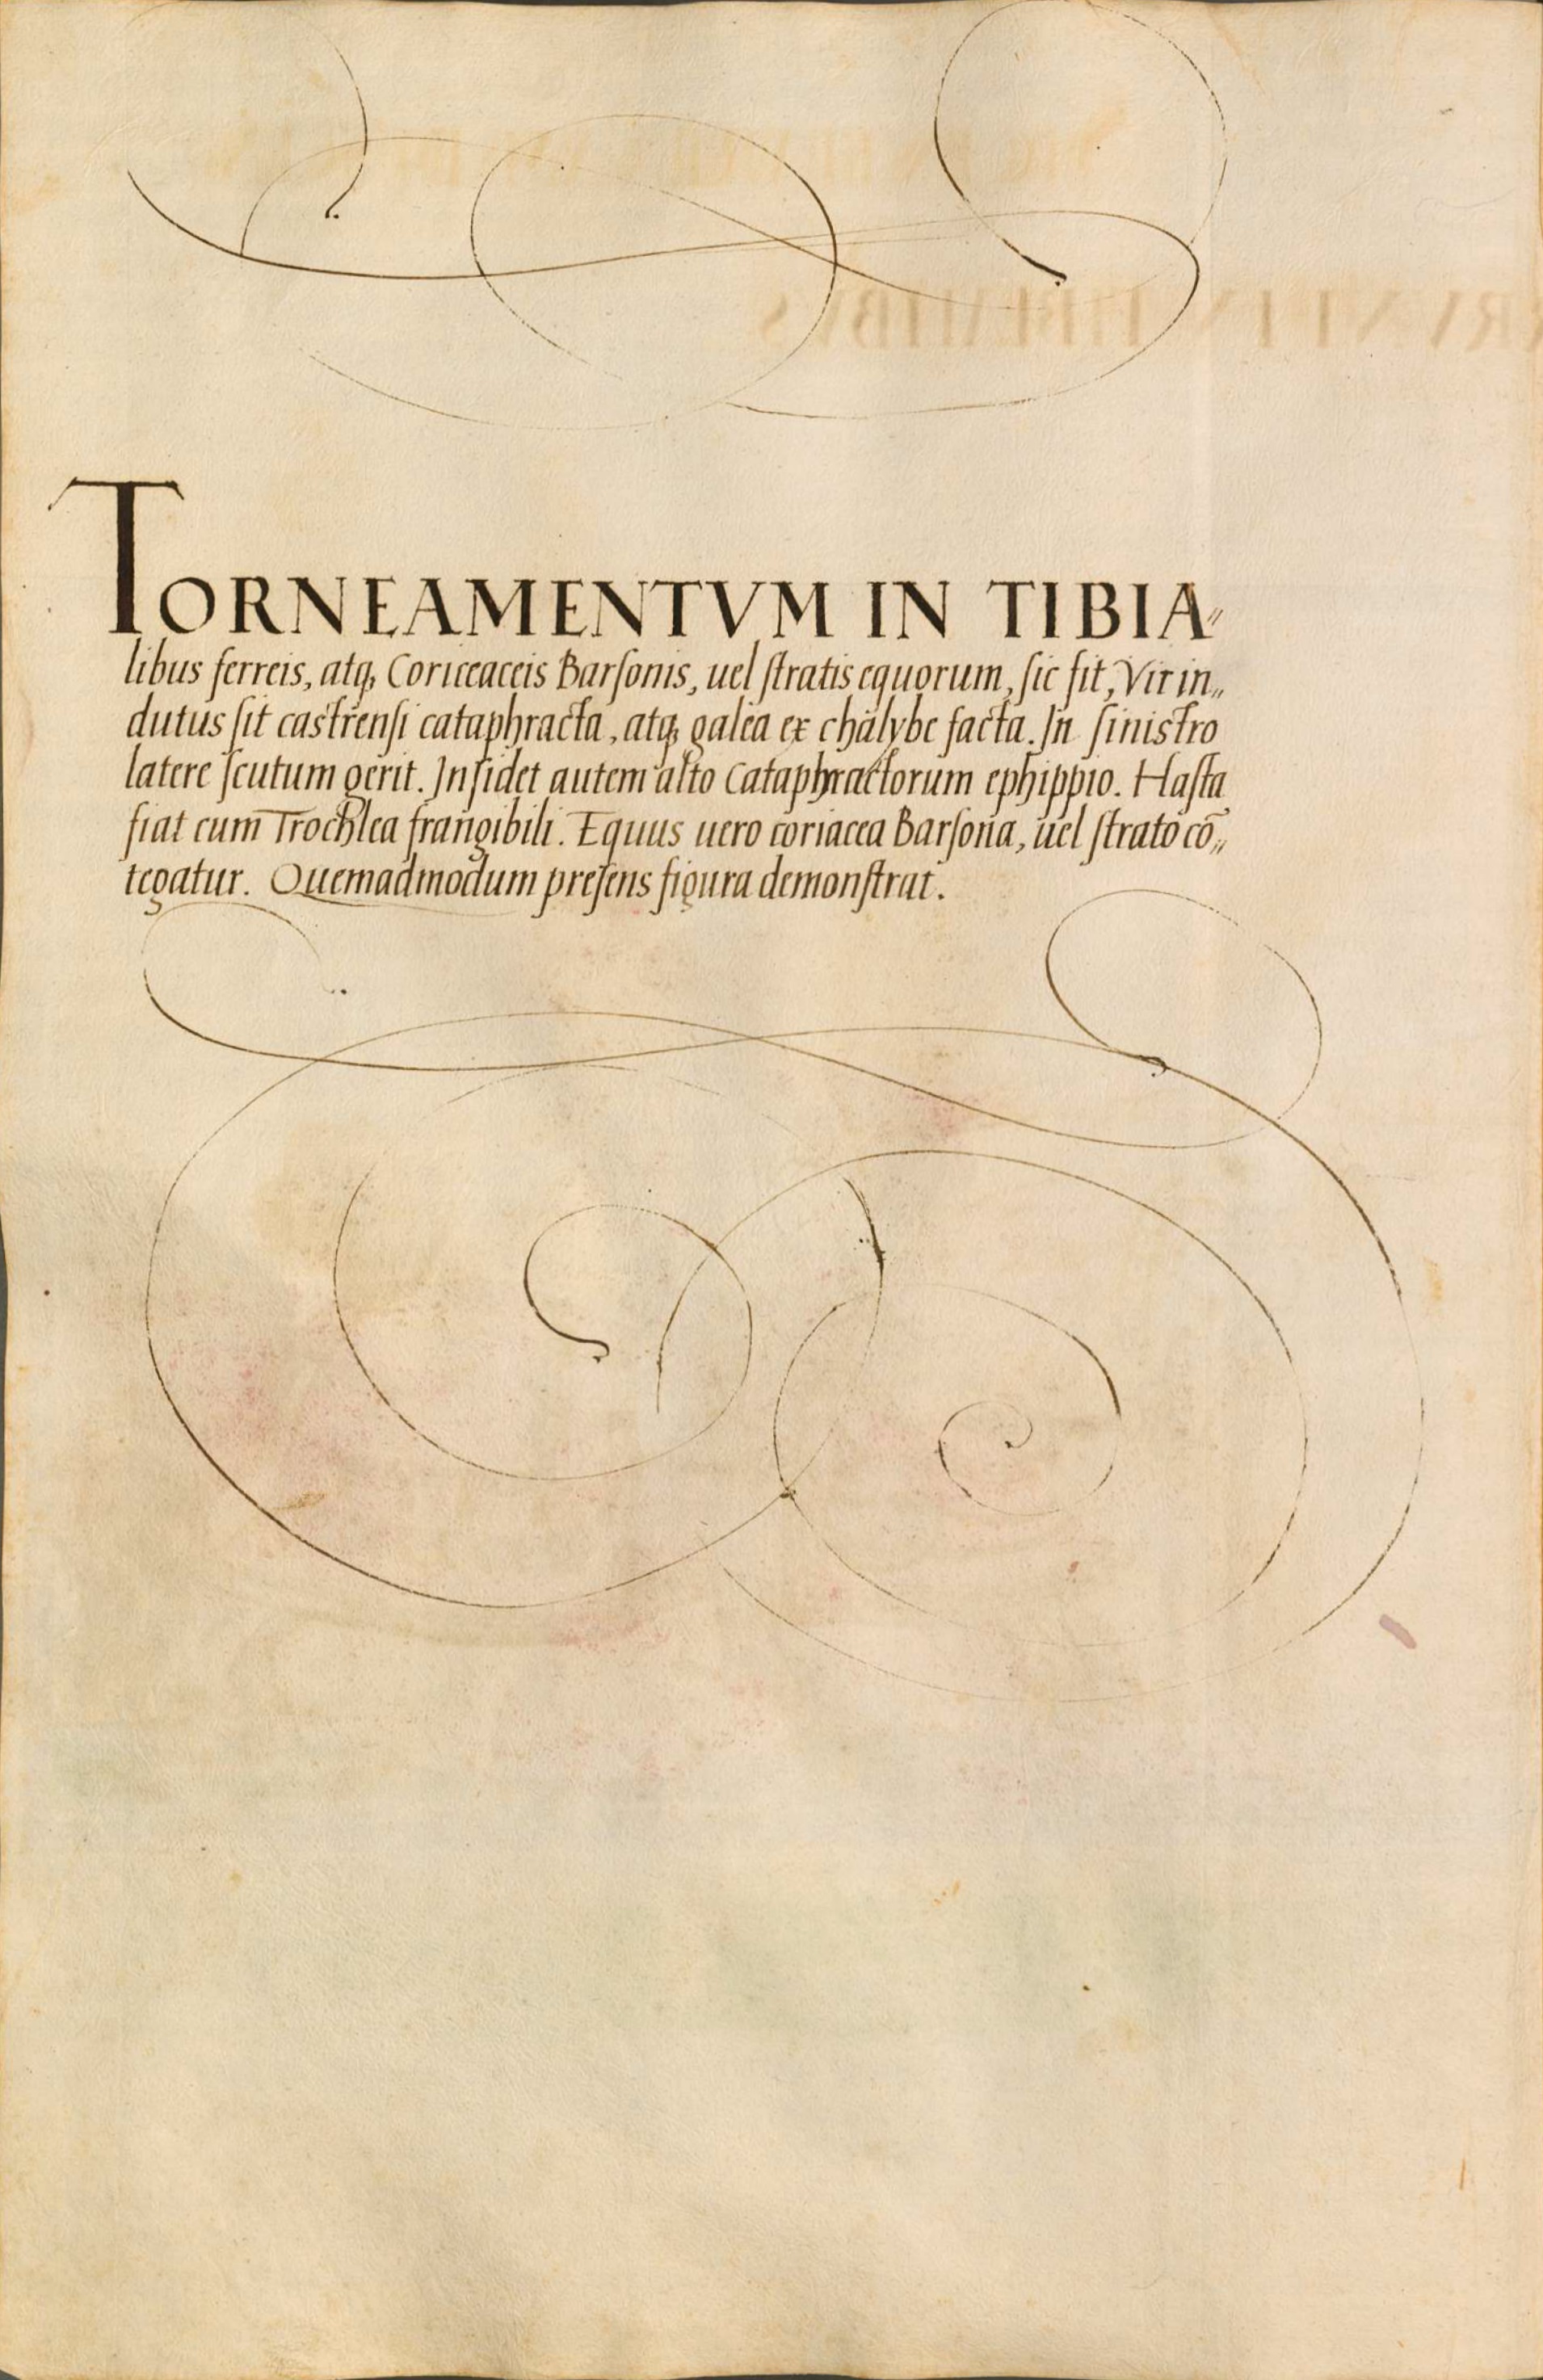 TORNEAMENTVM IN TIBIA〃
libus ferreis, atq; Coricеaceis Barſonis, uel ſtratis equorum, ſic fit, Vir in〃
dutus ſit caſtrenſi cataphracta, atq; galea ex chalybe facta. In ſiniſtro
latere ſcutum gerit. Inſidet autem alto Cataphractorum ephippio. Haſta
fiat cum Trochlea frangibili. Equus uero coriacea Barſona, uel ſtrato cō〃
tegatur. Quemadmodum preſens figura demonſtrat.